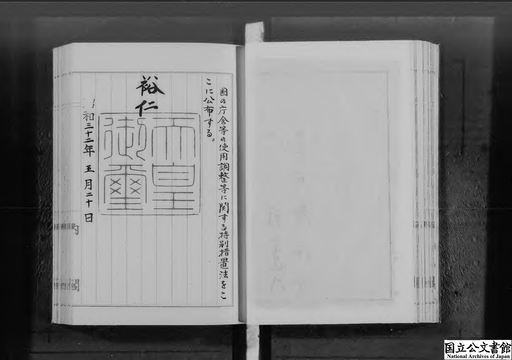 国の庁舎等の使用調整等に関する特別措置法をこ
こに公布する。
裕仁
天皇
御璽
昭和三十二年五月二十日
国立公文書館
National Archives of Japan